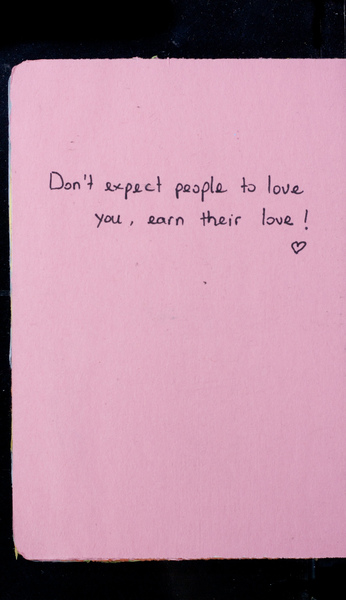 Don't expect people to love
you, earn their love!
♡